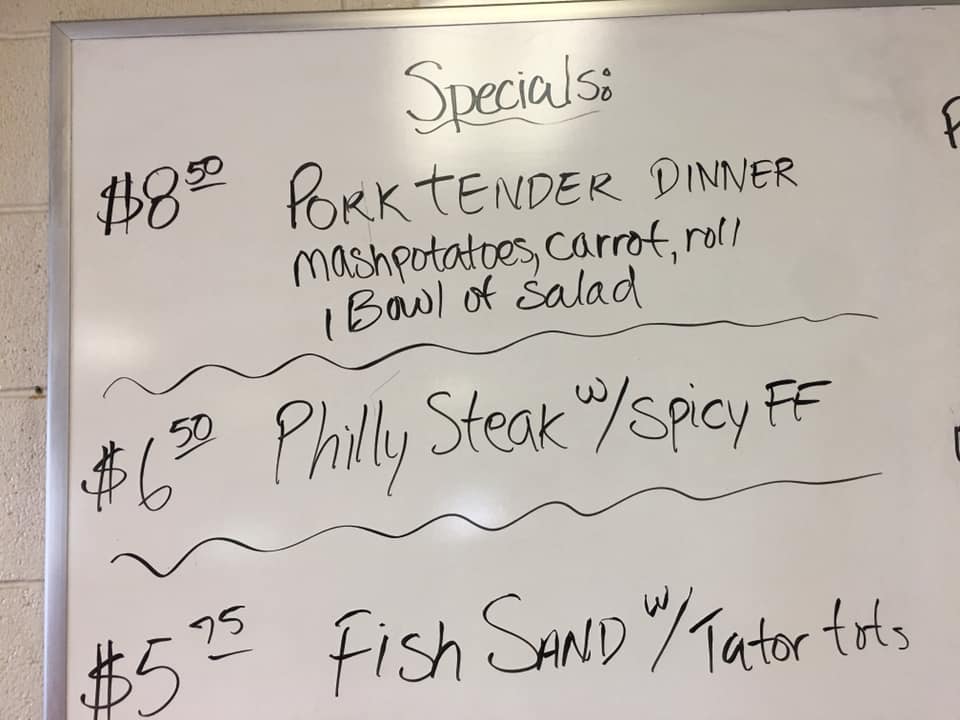 Specials:
$8 50 PORK TENDER DINNER
mashpotatoes, carrot, roll
1 Bowl of salad
$6 50 Philly Steak w/ spicy FF
$5 75 Fish SAND w/ Tator tots